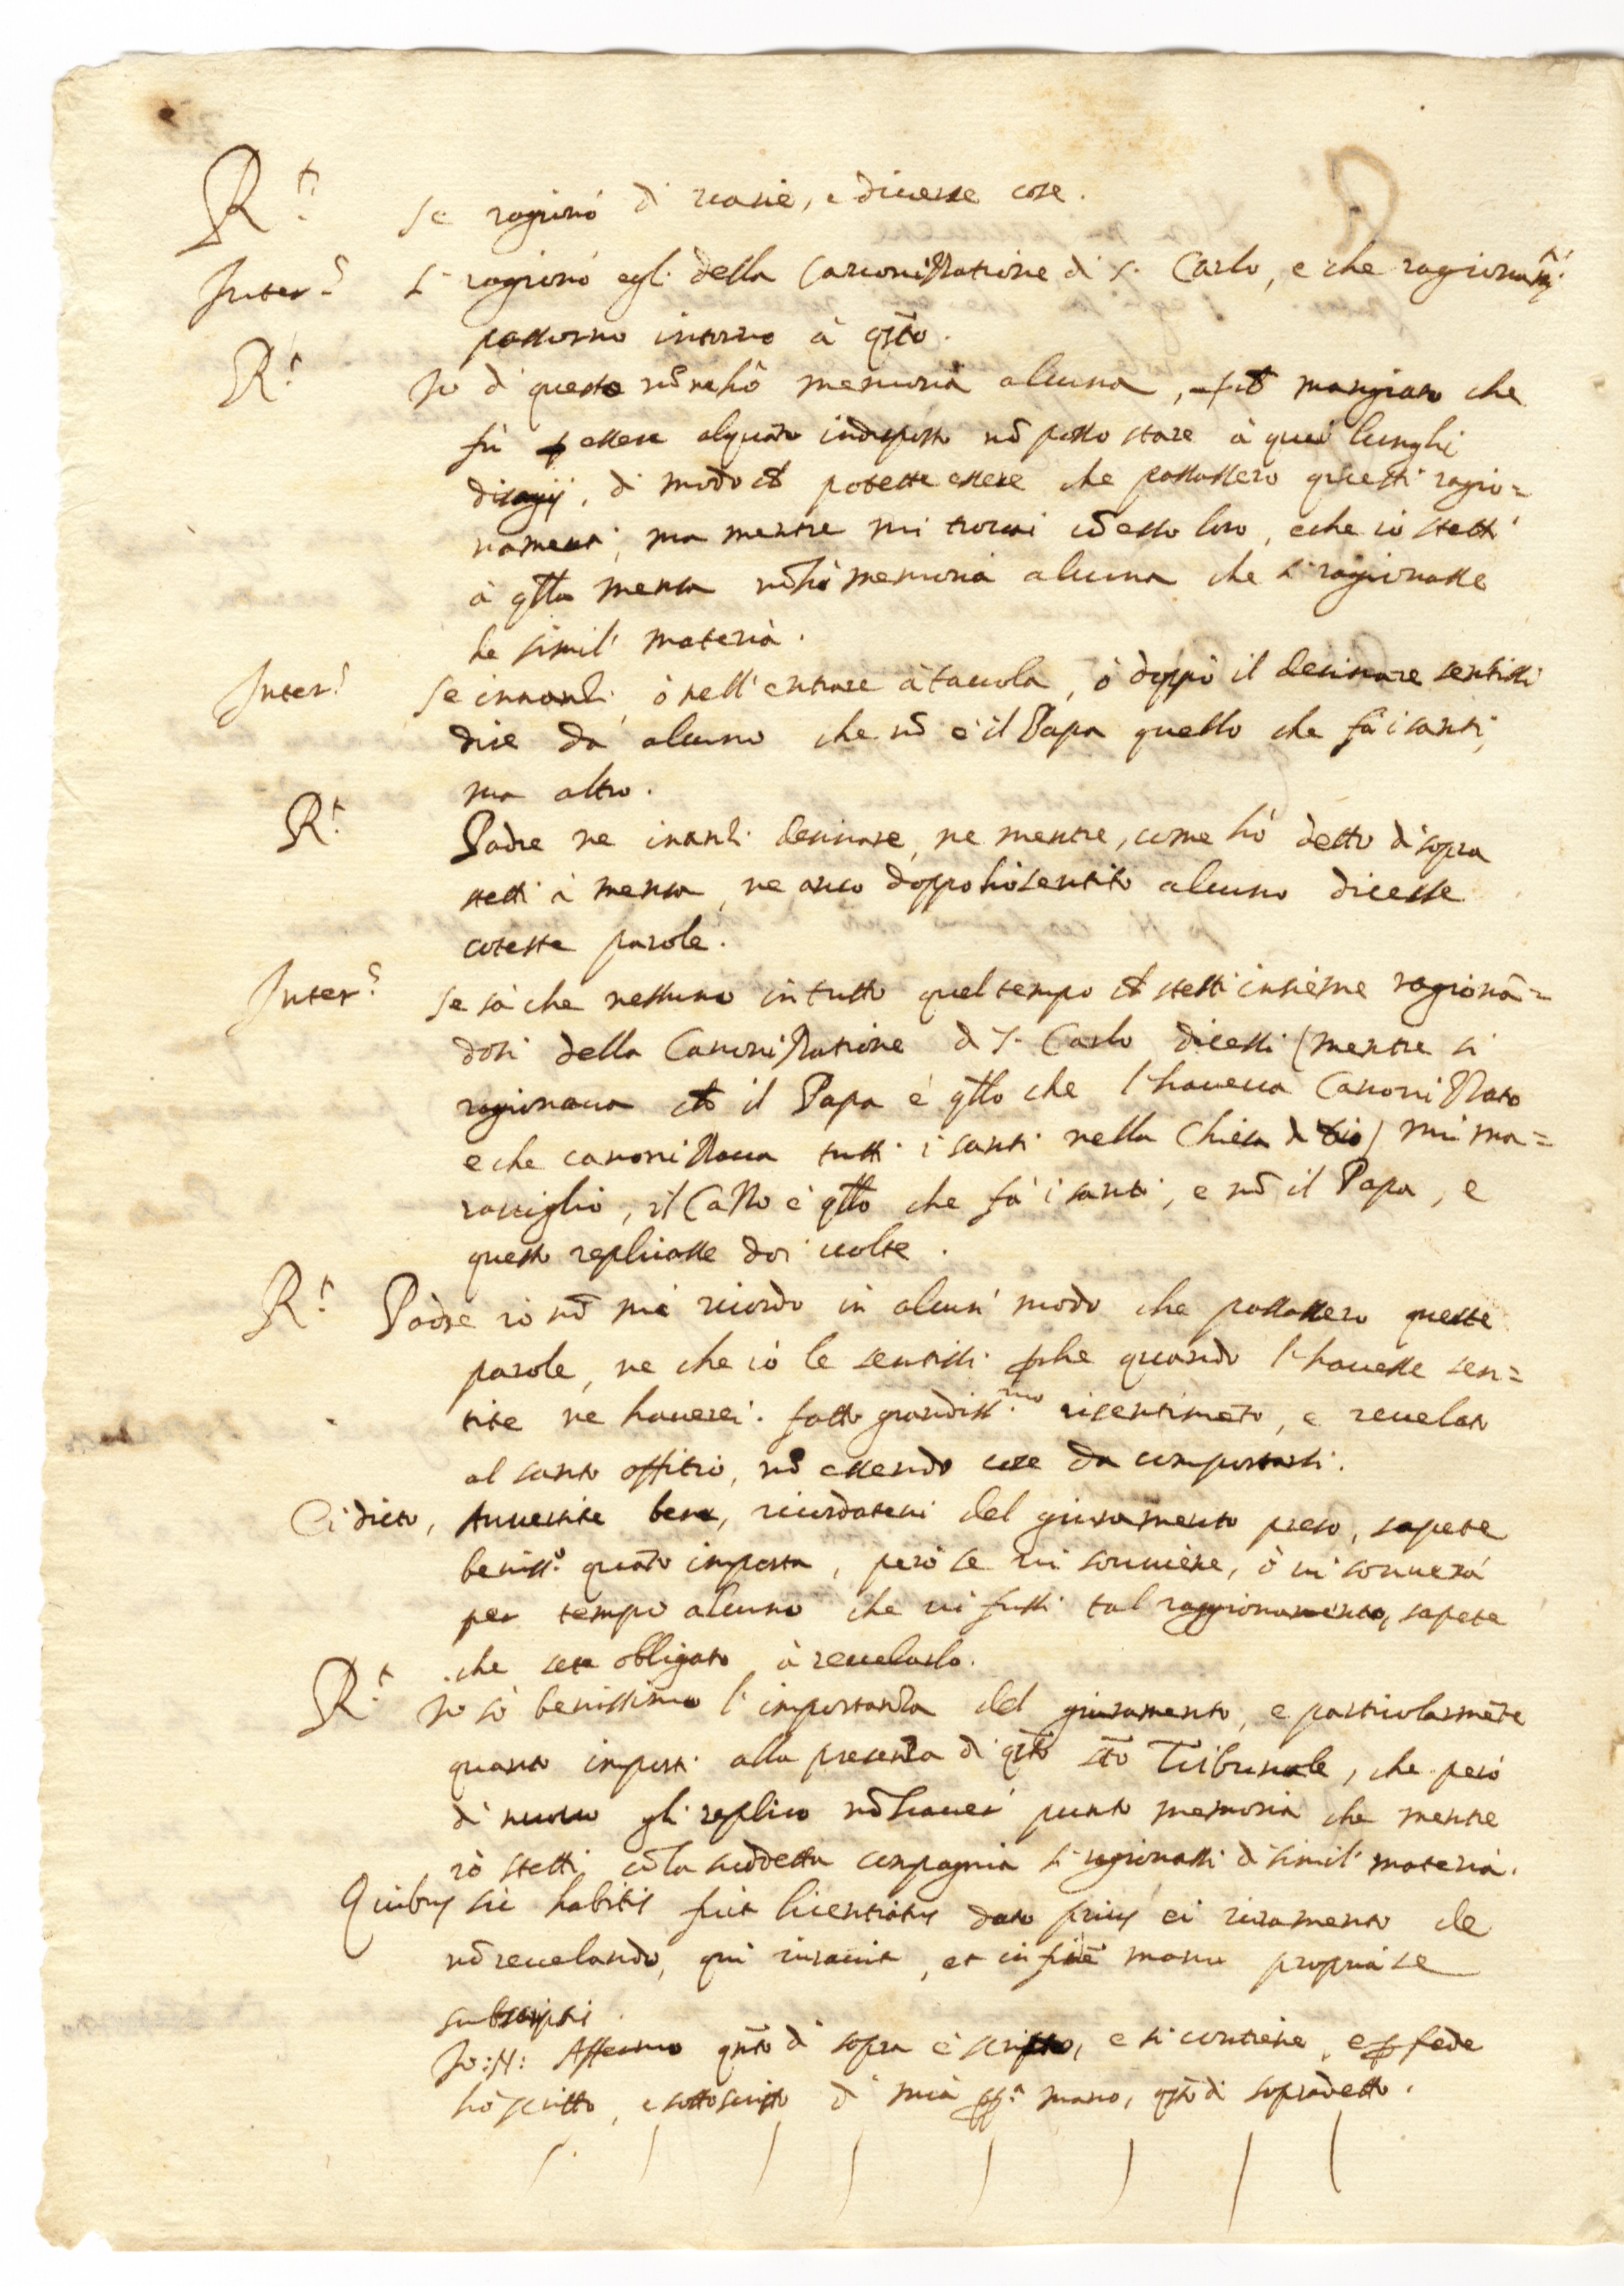 R.t Se ragionò di varie, e diverse cose.
Inter.s Si ragionò egli della Canonizzatione di S. Carlo, e che ragionam.ti
passorno intorno à q̃sto.
R.t Io di questo nõ ne hò memoria alcuna, mangiato che
fù ꝑ essere alquãto indisposto nõ posso stare à quei lunghi
disagij, di modo ch potette essere che passassero questi ragio=
namenti, ma mentre mi trovai cõ esso loro, e che io stetti
à q̃lla mensa nõ hò memoria alcuna che si ragionasse
de simil materia.
Inter.s Se innanzi, ò nell'entrare à tavola, ò doppò il desinare sentissi
dire da alcuno che nõ è il Papa quello che fà i santi,
ma altro.
R.t Padre ne inanzi desinare, ne mentre, come hò detto di sopra
stetti à mensa, ne anco doppo hò sentito alcuno dicesse
coteste parole.
Inter.s Se sà che nessuno in tutto quel tempo ch stetti insieme ragionã=
dosi della Canonizzatione di S. Carlo dicessi (mentre si
ragionava ch il Papa è q̃llo che l'haveva Canonizzato
e che canonizzava tutti i santi nella Chiesa di Dio) mi ma=
raviglio, il Cazzo è q̃llo che fà i santi, e nõ il Papa, e
questo replicasse doi volte.
R.t Padre io nõ mi ricordo in alcun modo che passassero queste
parole, ne che io le sentissi ꝑche quando l'havesse sen=
tite ne haverei fatto grandiss.mo risentimẽto, e revelato
al santo offitio, nõ essendo cose da comportarsi.
Ei dicto, Avvertite bene, ricordatevi del giuramento preso, sapete
beniss.o quãto importa, però se vi sovviene, ò vi sovverrà
per tempo alcuno che vi fussi tal raggionamento, sapete
che sete obligato à revelarlo.
R.t Io sò benissimo l'importanza del giuramento, e particolarmẽte
quanto importi alla presenza di q̃sto s̃to Tribunale, che però
di nuovo gli replico nõ haver punto memoria che mentre
io stetti cõ la suddetta compagnia si ragionassi di simil materia.
Quibus sic habitis fuit licentiatus dato prius ei iuramento de
nõ revelando, qui iuravit, et in fidẽ manu propria se
subscripsi.
Io: N: Affermo q̃nto di sopra è scritto, e si contiene, e ꝑ fede
hò scritto, e sottoscritto di mia ꝓp.a mano, q̃sto dì sopradetto.